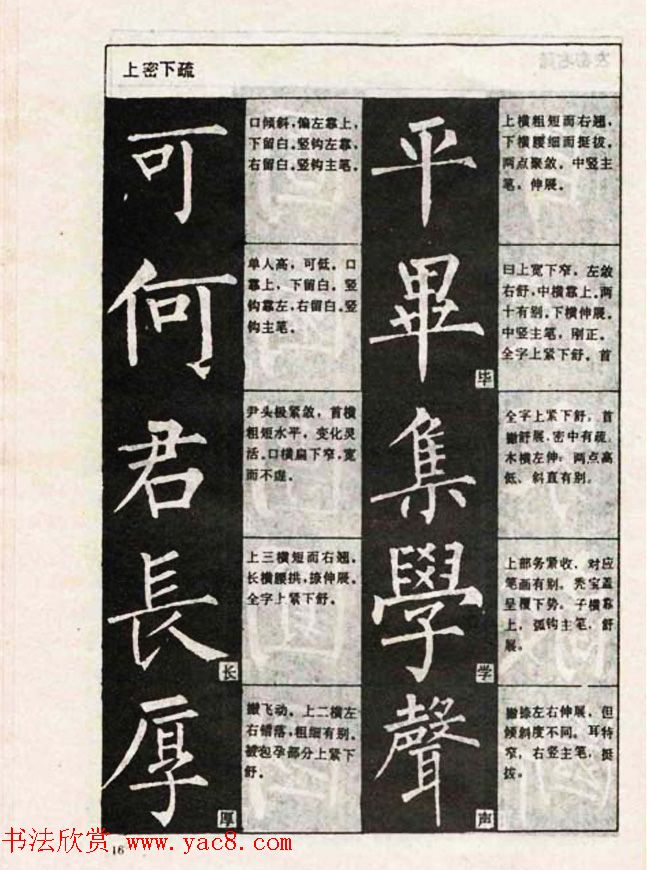 上密下疏
可
口倾斜，偏左靠上，
下留白。竖钩左靠，
右留白。竖钩主笔。
何
单人高，可低。口
靠上，下留白。竖
钩靠左，右留白。竖
钩主笔。
君
尹头极紧敛，首横
粗短水平，变化灵
活。口横扁下窄，宽
而不虚。
長
长
上三横短而右翘。
长横腰拱，捺伸展。
全字上紧下舒。
厚
厚
撇飞动。上二横左
右错落，粗细有别。
被包孕部分上紧下
舒。
平
上横粗短而右翘，
下横腰细而挺拔，
两点聚敛。中竖主
笔，伸展。
畢
毕
曰上宽下窄，左敛
右舒，中横靠上。两
十有别。下横伸展。
中竖主笔，刚正。
全字上紧下舒。首
集
全字上紧下舒，首
撇舒展，密中有疏，
木横左伸；两点高
低、斜直有别。
學
学
上部务紧收，对应
笔画有别。秃宝盖
呈覆下势。子横靠
上，弧钩主笔，舒
展。
聲
声
撇捺左右伸展，但
倾斜度不同。耳特
窄，右竖主笔，挺
拔。
16
书法欣赏 www.yac8.com